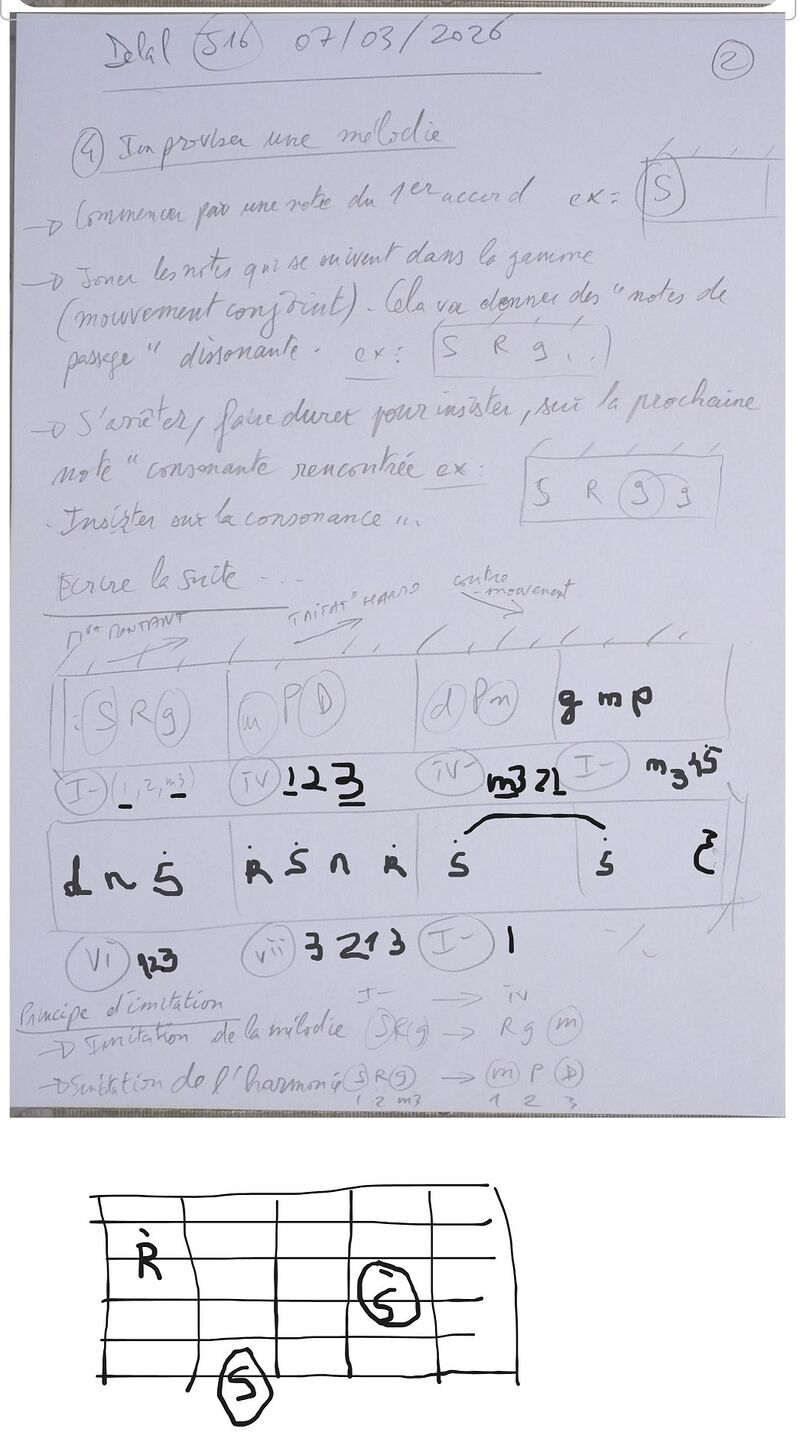 Delal J16 07/03/2026
2
4 Improviser une mélodie
→ Commencer par une note du 1er accord ex: S
→ Jouer les notes qui se suivent dans la gamme
(mouvement conjoint). Cela va donner des "notes de
passage" dissonante. ex: S R g . .
→ S'arrêter, faire durer pour insister, sur la prochaine
note "consonante rencontrée ex:
S R g g
Insister sur la consonance ...
Ecrire la suite ...
contre
-mouvement
: S R g m P D d P n g m p
I- (1, 2, m3) iv 1 2 3 iv- m3 2 1 I- m3 4 5
d n Ṡ Ṙ Ṡ n Ṙ Ṡ Ṡ
VI 123 vii 3 2 1 3 I- 1 ·/.
Principe d'imitation I- → iv
→ Imitation de la mélodie S R g → R g m
→ Imitation de l'harmonie S R g → m P D
1 2 m3 1 2 3
Ṙ
Ṡ
S